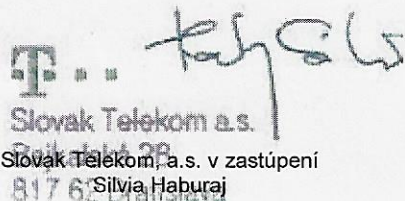 T
Slovak Telekom a.s.
Slovak Telekom, a.s. v zastúpení
817 62 Bratislava
Silvia Haburaj